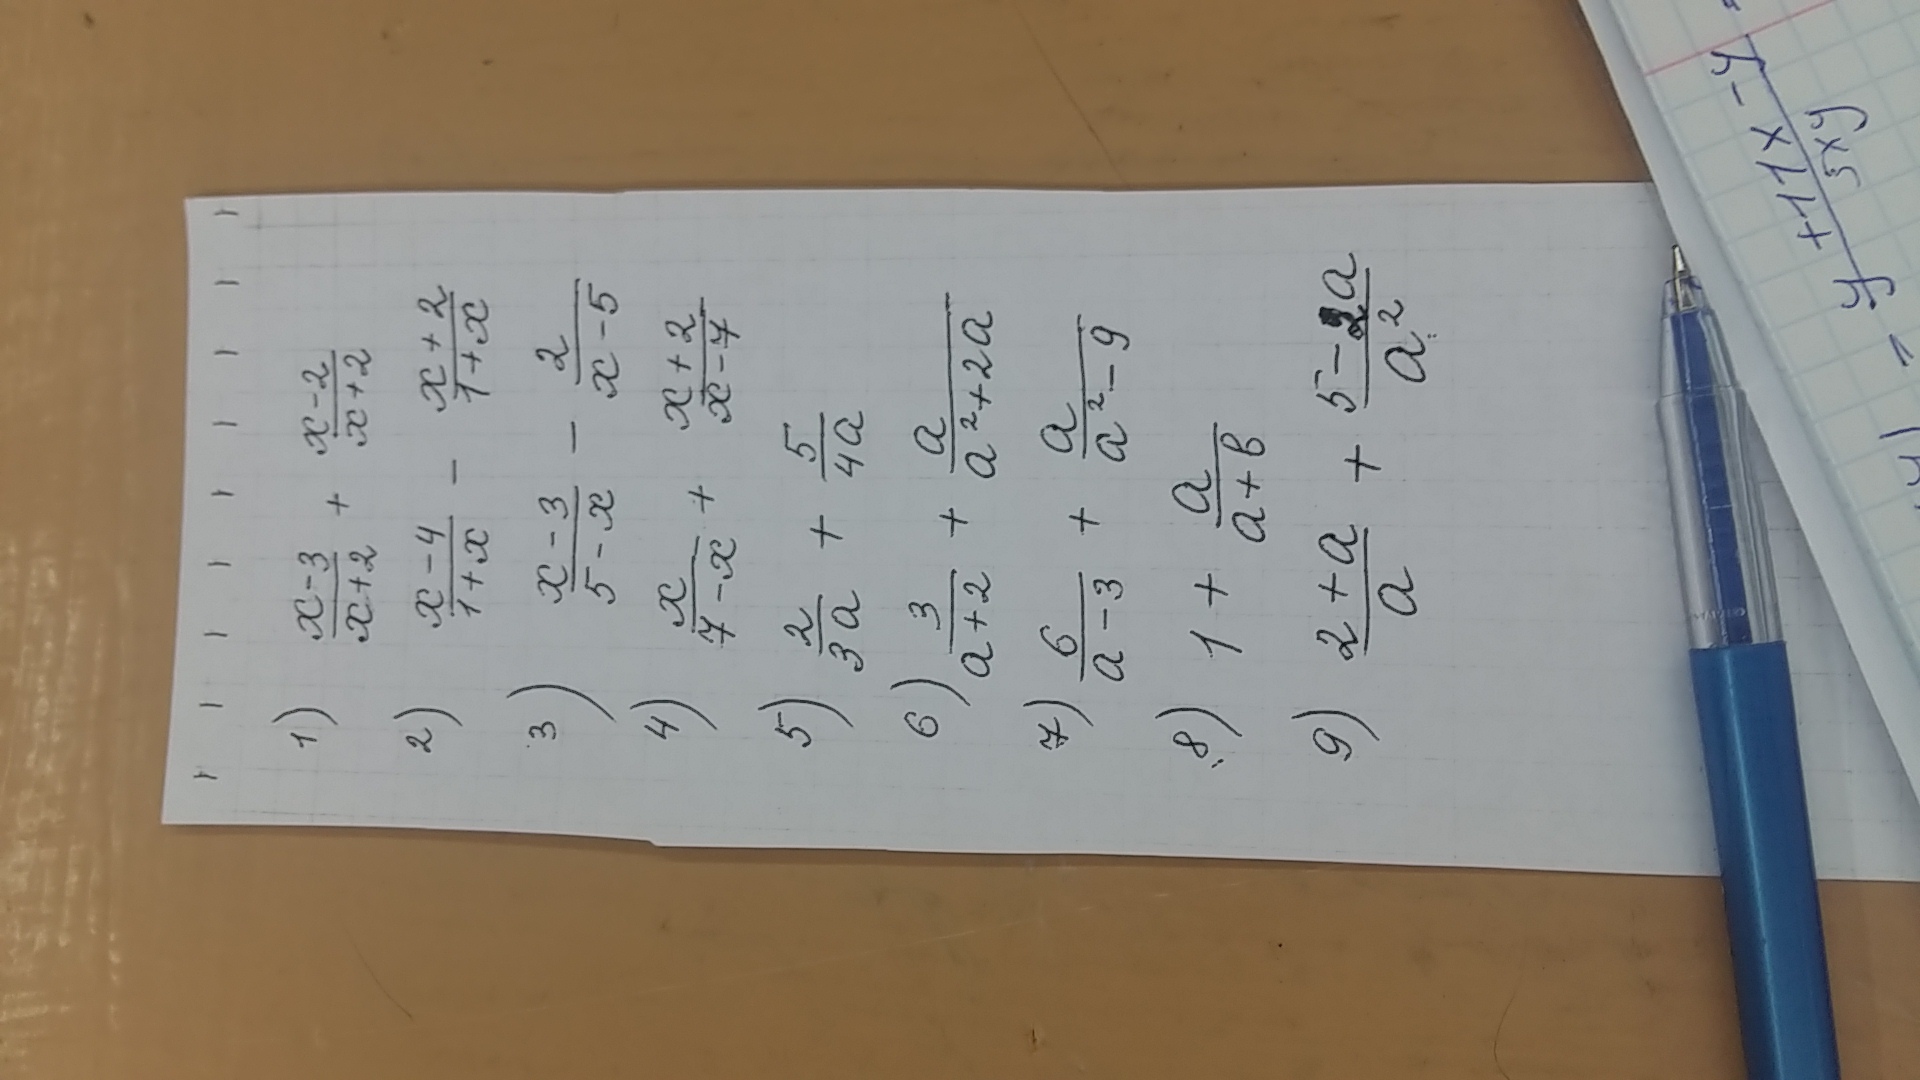 1) \frac{x-3}{x+2} + \frac{x-2}{x+2}
2) \frac{x-4}{1+x} - \frac{x+2}{1+x}
3) \frac{x-3}{5-x} - \frac{2}{x-5}
4) \frac{x}{7-x} + \frac{x+2}{x-7}
5) \frac{2}{3a} + \frac{5}{4a}
6) \frac{3}{a+2} + \frac{a}{a^2+2a}
7) \frac{6}{a-3} + \frac{a}{a^2-9}
8) 1 + \frac{a}{a+b}
9) \frac{2+a}{a} + \frac{5-2a}{a^2}
y+11x-y
5xy